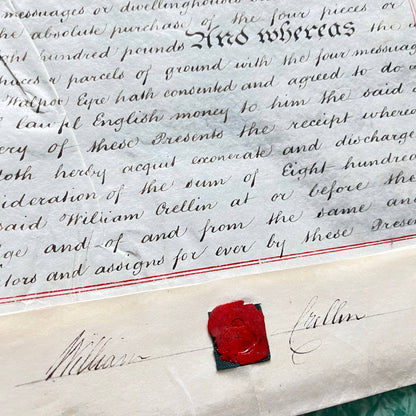 messuages or dwellinghouses
the absolute purchase of the four pieces or
ight hundred pounds And whereas the
paces or parcels of ground with the four messuag
Walpole Eyre hath consented and agreed to do a
of lawful English money to him the said
ery of these Presents the receipt whereo
doth herby acquit exonerate and discharge
sideration of the sum of Eight hundre
said William Crellin at or before the
ge and of and from the same and
tors and assigns for ever by these Presen
William Crellin